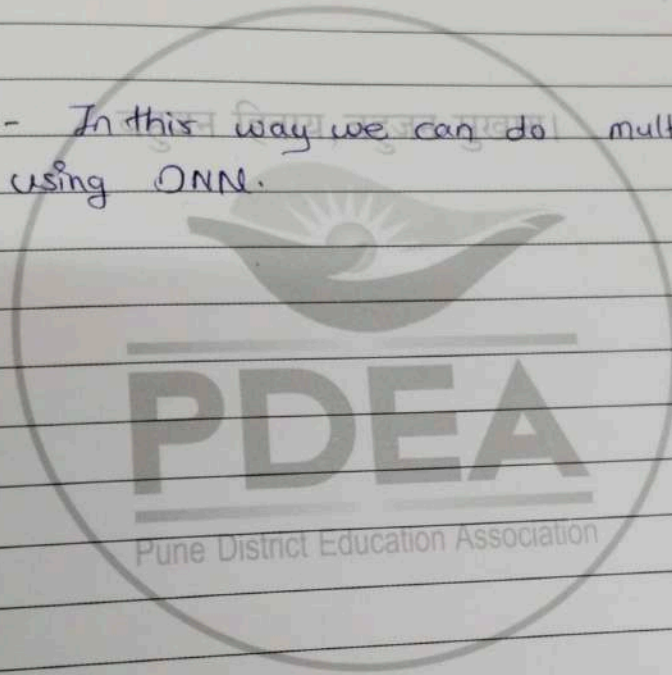 - In this way we can do mult
using DNN.
PDEA
Pune District Education Association